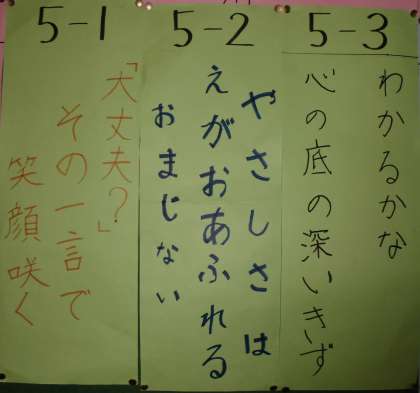 5-1
「大丈夫?」
その一言で
笑顔咲く
5-2
やさしさは
えがおあふれる
おまじない
5-3
わかるかな
心の底の深いきず